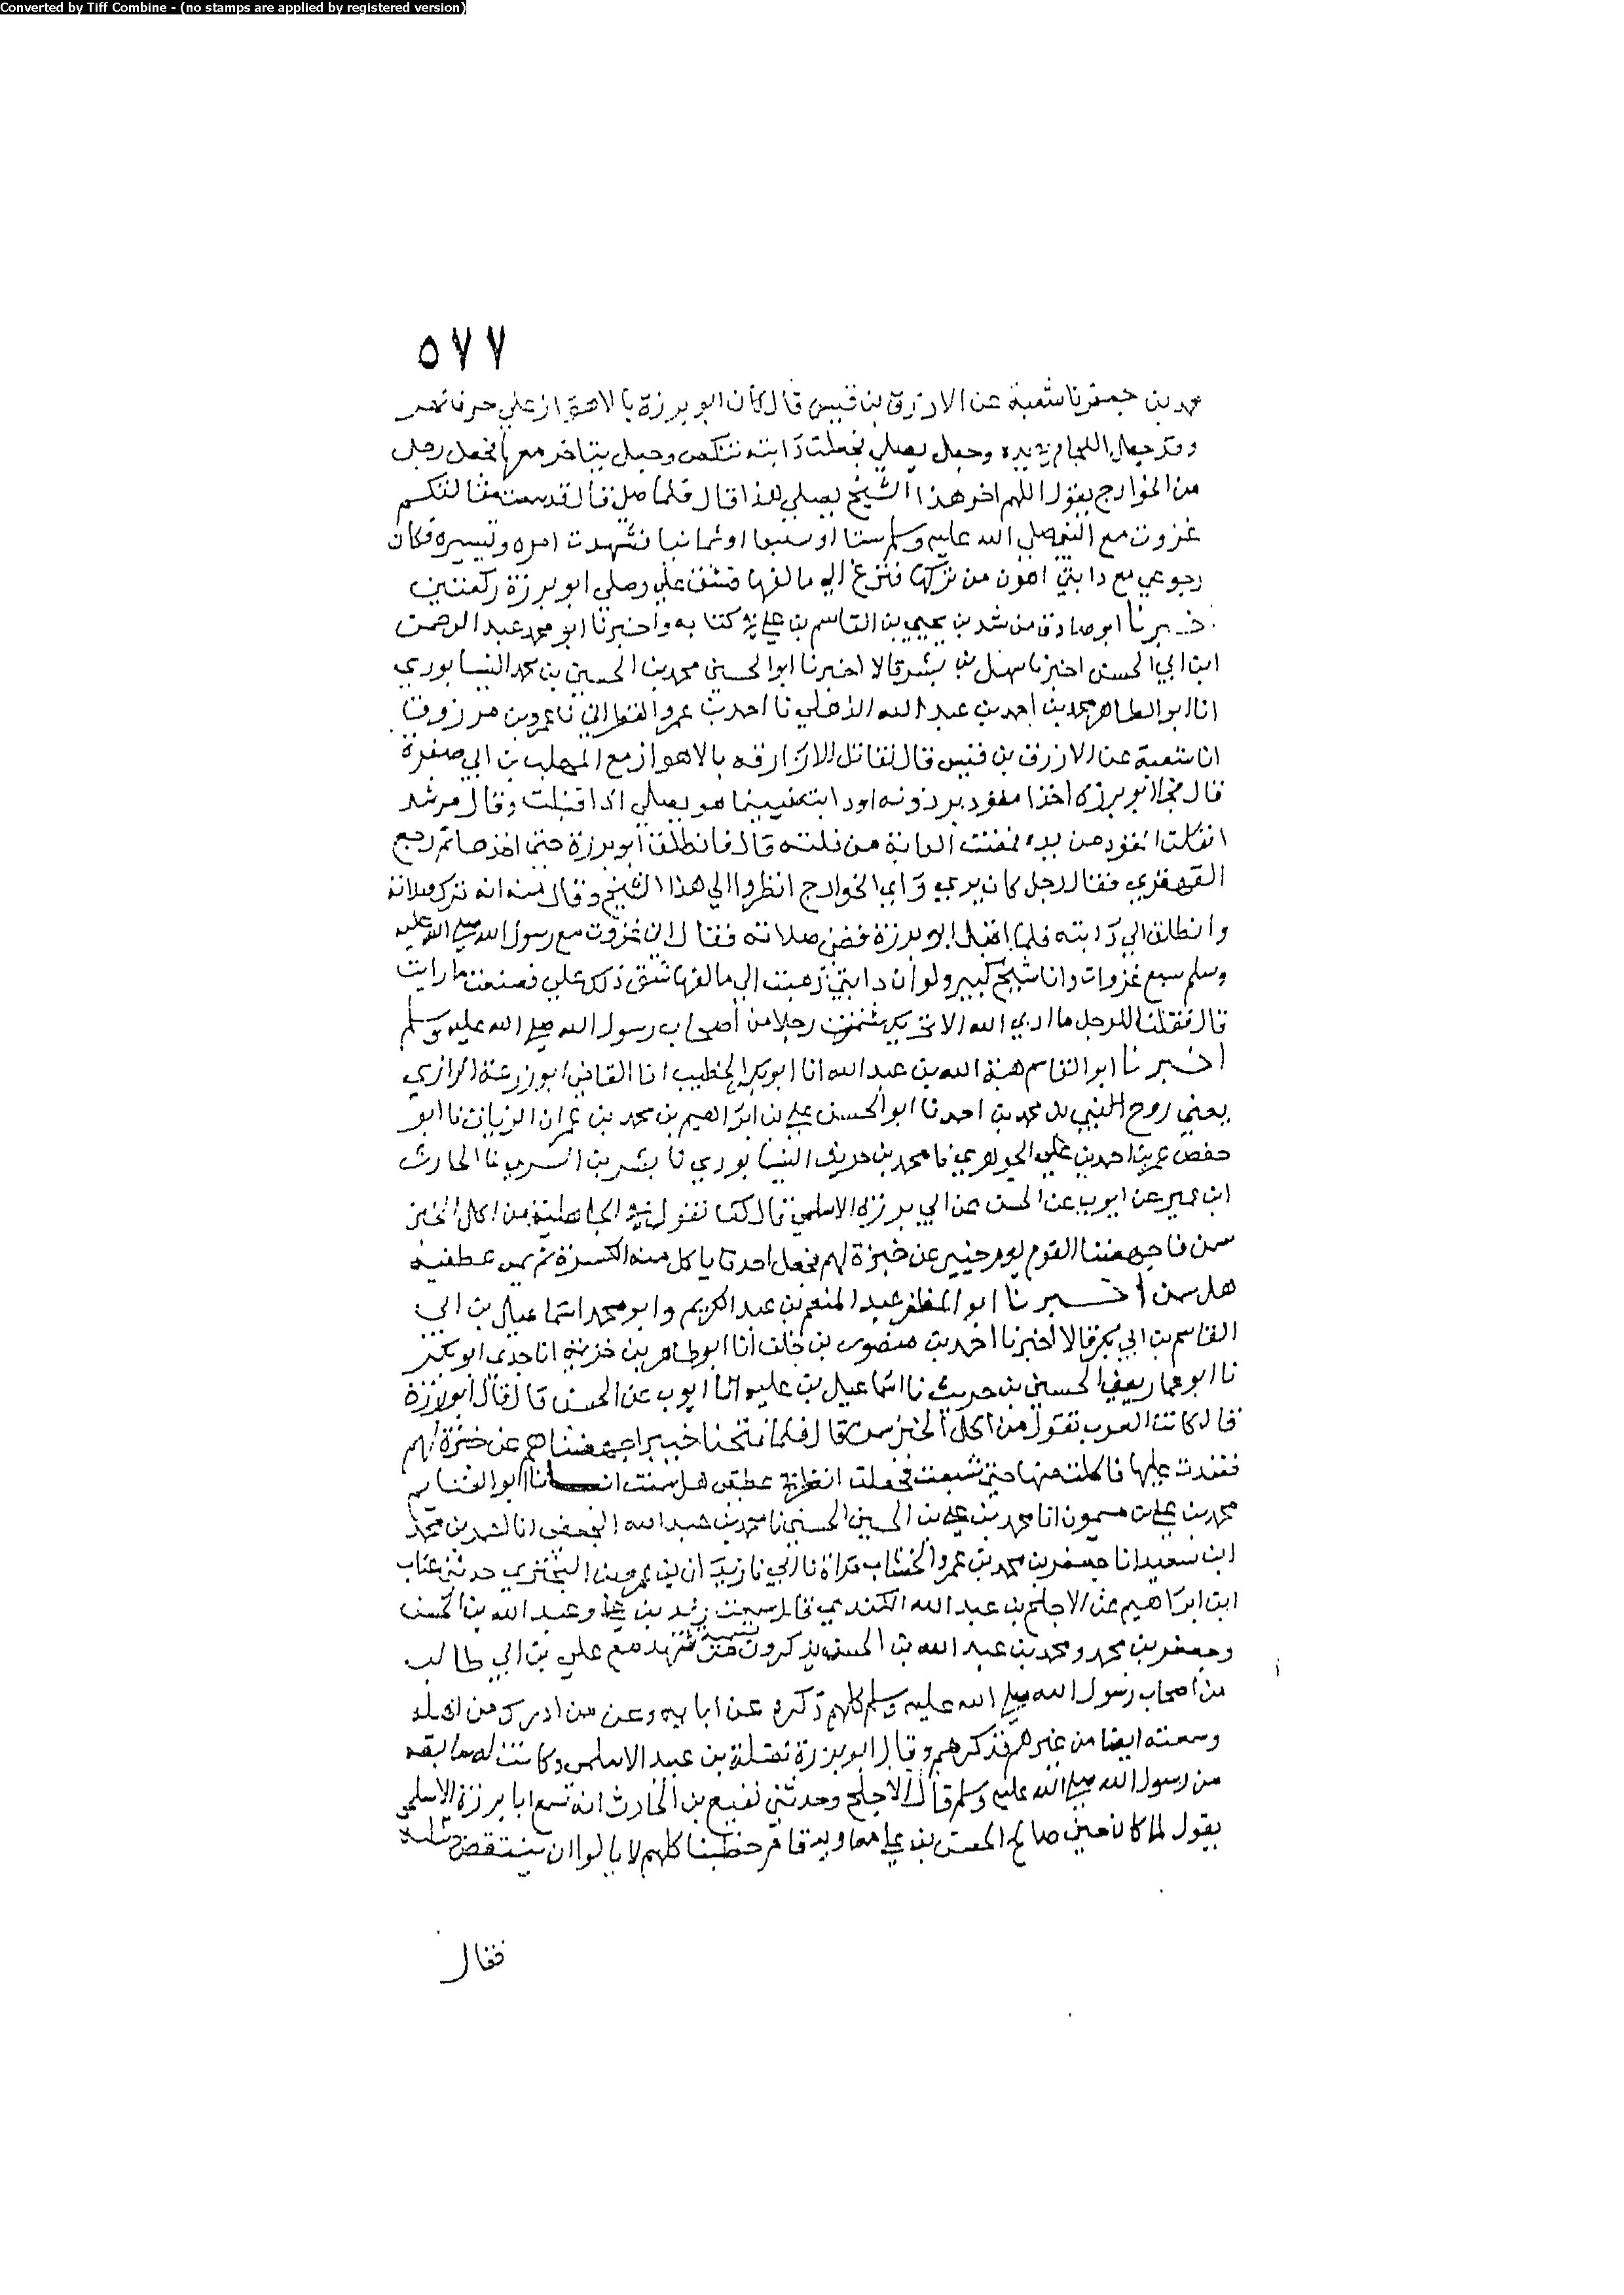 Converted by Tiff Combine - (no stamps are applied by registered version)
٥٧٧
محمد بن جعفر نا شعبة عن الازرق بن قيس قال كان ابو برزة بالاهواز علي حرف نهر
وقد جعل اللجام في يده وجعل يصلي فجعلت دابته تنكص وجعل يتاخر معها فجعل رجل
من الخوارج يقول اللهم اخز هذا الشيخ يصلي قال فلما صلي قال قد سمعت مقالتكم
غزوت مع النبي صلي الله عليه وسلم ستا او سبعا او ثمانيا فشهدت امره وتيسيره فكان
رجوعي مع دابتي اهون من تركها فتنزع الي مالفها فيشق علي وصلي ابو برزة ركعتين
خبرنا ابو صادق مرشد بن يحيي بن القاسم بن علي في كتابه واخبرنا ابو محمد عبد الرحمن
ابن ابي الحسن اخبرنا سهل بن بشر قالا اخبرنا ابو الحسن محمد بن الحسين بن محمد النيسابوري
انا ابو الطاهر محمد بن احمد بن عبد الله الذهلي نا احمد بن عمرو القطراني نا عمرو بن مرزوق
انا شعبة عن الازرق بن قيس قال نقاتل الازارقه بالاهواز مع المهلب بن ابي صفرة
قال فجا ابو برزه اخذا مقود برذونه او دابته فبينما هو يصلي اذا قبلت وقال مرشد
انفلت المقود من يده فمضت الدابة من قلته قال فانطلق ابو برزة حتي اخذها ثم رجع
القهقري فقال رجل كان يري راي الخوارج انظروا الي هذا الشيخ وقال منه انه ترك صلاته
وانطلق الي دابته فلما اقبل ابو برزة قضي صلاته فقال اني غزوت مع رسول الله صلي الله عليه
وسلم سبع غزوات وانا شيخ كبير ولو ان دابتي ذهبت الي مالفها شق ذلك علي فصنعت ما رايت
قال فقلنا للرجل ما اري الله الا مخزيك شتمت رجلا من اصحاب رسول الله صلي الله عليه وسلم
اخبرنا ابو القاسم هبة الله بن عبد الله انا ابو بكر الخطيب انا القاضي ابو زرعة الرازي
يعني روح بن محمد بن احمد نا ابو الحسن علي بن ابراهيم بن محمد بن عمران الزيات نا ابو
حفص عمر بن احمد بن علي الجوهري نا محمد بن حريث النيسابوري نا بشر بن السري نا الحارث
ابن عمير عن ايوب عن الحسن عن ابي برزه الاسلمي قال كنا نقول في الجاهلية من اكل الخبز
سمن فاجهضنا القوم يوم خيبر عن خبزة لهم فجعل احدنا ياكل منه الكسرة ثم يمس عطفيه
هل سمن اخبرنا ابو المظفر عبد المنعم بن عبد الكريم وابو محمد اسماعيل بن ابي
القاسم بن ابي بكر قالا اخبرنا احمد بن منصور بن خلف انا ابو طاهر بن خزيمة انا جدي ابو بكر
نا ابو عمار يعني الحسين بن حريث نا اسماعيل بن علية انا ايوب عن الحسن قال قال ابو برزة
قال كانت العرب تقول من اكل الخبز سمن قال فلما فتحنا خيبر اجهضناهم عن خبزة لهم
فقعدت عليها فاكلت منها حتي شبعت فجعلت انظر في عطفي هل سمنت انبانا ابو الغنايم
محمد بن علي بن ميمون انا محمد بن علي بن الحسين الحسني نا محمد بن عبد الله الجعفي انا بن محمد
ابن سعيد انا جعفر بن محمد بن عمرو الخشاب قراة نا ابي نا زيدان بن عمر بن البختري حدثني غياث
ابن ابراهيم عن الاجلح بن عبد الله الكندي قال سمعت زيد بن علي وعبد الله بن الحسن
وجعفر بن محمد ومحمد بن عبد الله بن الحسن يذكرون تسمية من شهد مع علي بن ابي طالب
من اصحاب رسول الله صلي الله عليه وسلم كلهم ذكره عن ابايه وعن من ادرك من اهله
وسمعته ايضا من غيرهم فذكرهم وقال ابو برزة نضلة بن عبد الاسلمي وكانت له سابقه
من رسول الله صلي الله عليه وسلم قال الاجلح وحدثني نفيع بن الحارث انه سمع ابا برزة الاسلمي
يقول لما كان حين صالح الحسن بن علي معاوية قام خطبنا كلهم لا يالوا ان ينتقض
فقال